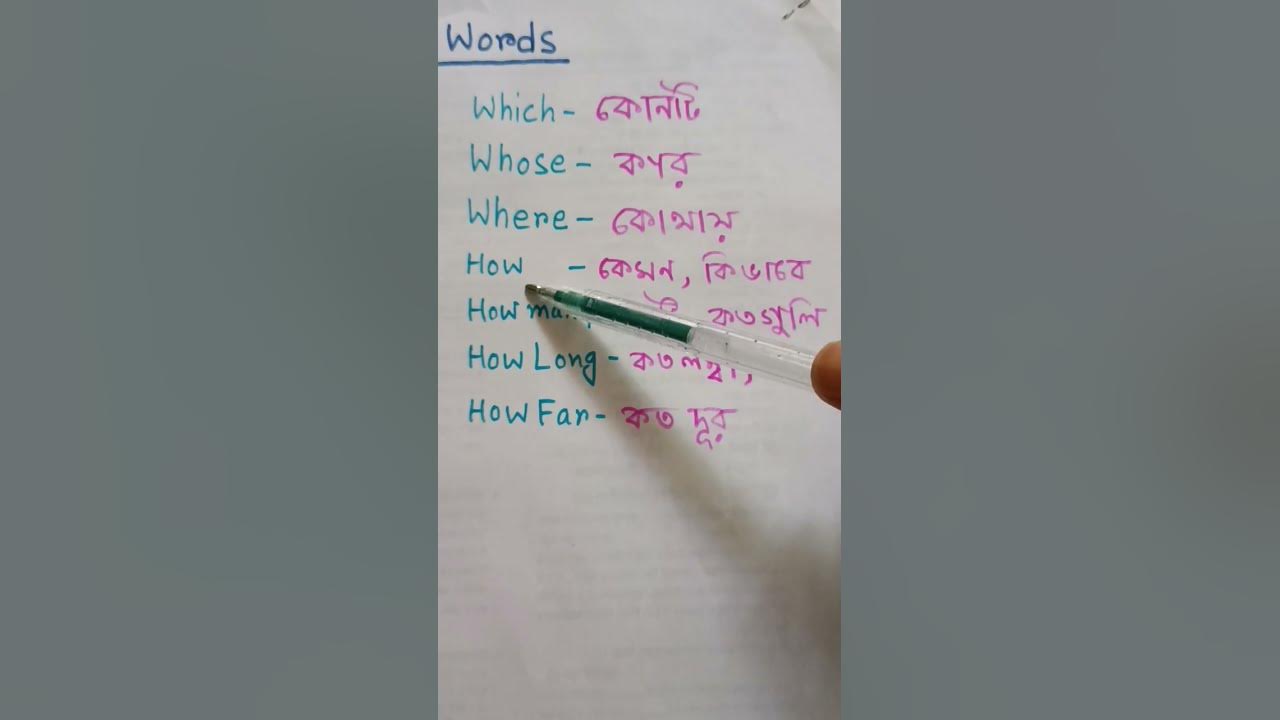 Words
Which - কোনটি
Whose - কার
Where - কোথায়
How - কেমন, কিভাবে
How কতগুলি
How Long - কত লম্বা,
How Far - কত দূর